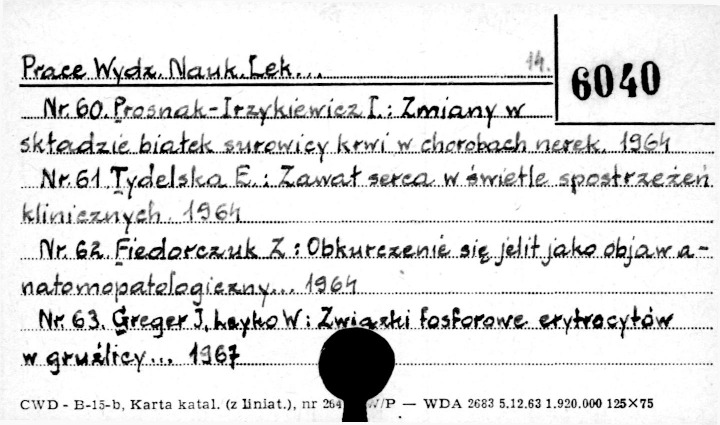 Prace Wydz. Nauk. Lek... 14.
6040
Nr. 60. Prosnak-Irzykiewicz I.: Zmiany w
składzie białek surowicy krwi w chorobach nerek. 1964
Nr. 61 Tydelska E.: Zawał serca w świetle spostrzeżeń
klinicznych. 1964
Nr. 62. Fiedorczuk Z: Obkurczenie się jelit jako objaw a-
natomopatologiczny... 1964
Nr. 63. Greger J, Leyko W: Związki fosforowe erytrocytów
w gruźlicy... 1967
CWD - B-15-b, Karta katal. (z liniat.), nr 264 W/P — WDA 2683 5.12.63 1.920.000 125×75